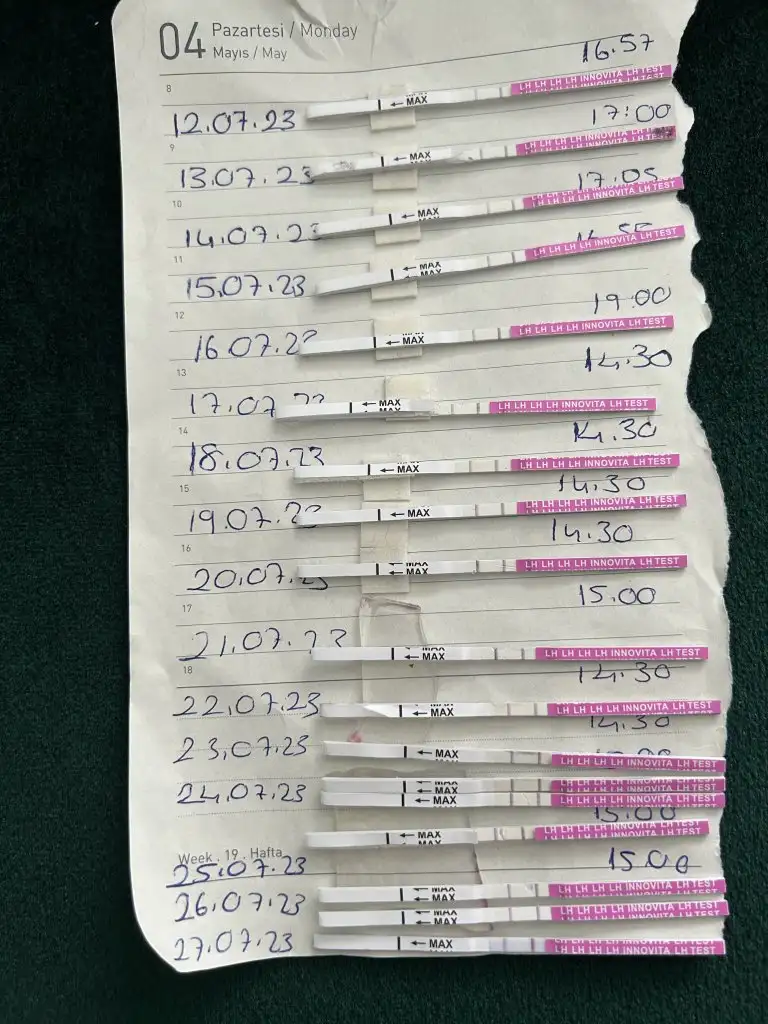 04 Pazartesi / Monday
Mayıs / May
16.57
8
← MAX LH LH LH LH INNOVITA LH TEST
12.07.23 17:00
9
← MAX LH LH LH LH INNOVITA LH TEST
13.07.23 17.05
10
← MAX LH LH LH LH INNOVITA LH TEST
14.07.23
11
← MAX LH LH LH LH INNOVITA LH TEST
15.07.23
12 19:00
← MAX LH LH LH LH INNOVITA LH TEST
16.07.23
13 14.30
17.07.23 ← MAX LH LH LH LH INNOVITA LH TEST
14 14.30
18.07.23 ← MAX LH LH LH LH INNOVITA LH TEST
15 14.30
19.07.23 ← MAX LH LH LH LH INNOVITA LH TEST
16 14.30
20.07.23 ← MAX LH LH LH LH INNOVITA LH TEST
17 15.00
21.07.23 ← MAX LH LH LH LH INNOVITA LH TEST
18 14.30
22.07.23 ← MAX LH LH LH LH INNOVITA LH TEST
14.30
23.07.23 ← MAX LH LH LH LH INNOVITA LH TEST
← MAX LH LH LH LH INNOVITA LH TEST
24.07.23 ← MAX LH LH LH LH INNOVITA LH TEST
15.00
← MAX LH LH LH LH INNOVITA LH TEST
Week . 19 . Hafta
25.07.23 15.00
← MAX LH LH LH LH INNOVITA LH TEST
26.07.23 ← MAX LH LH LH LH INNOVITA LH TEST
27.07.23 ← MAX LH LH LH LH INNOVITA LH TEST